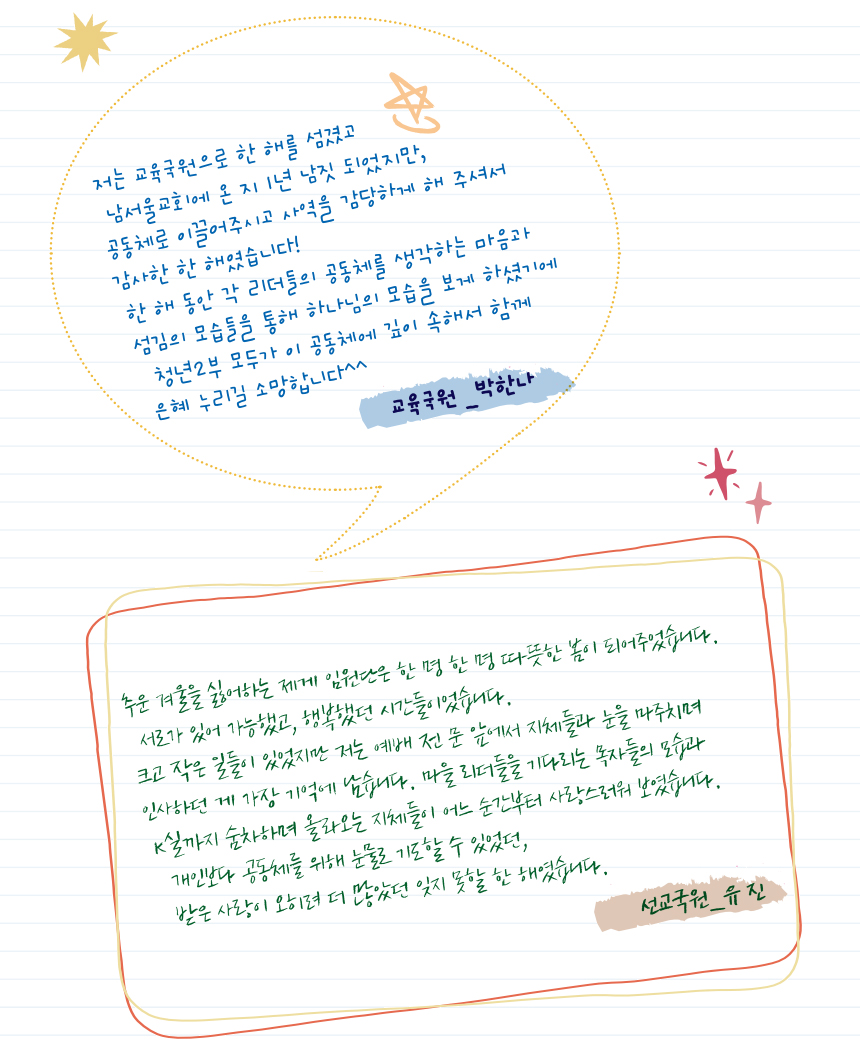 저는 교육국원으로 한 해를 섬겼고
남서울교회에 온 지 1년 남짓 되었지만,
공동체로 이끌어주시고 사역을 감당하게 해 주셔서
감사한 한 해였습니다!
한 해 동안 각 리더들의 공동체를 생각하는 마음과
섬김의 모습들을 통해 하나님의 모습을 보게 하셨기에
청년2부 모두가 이 공동체에 깊이 속해서 함께
은혜 누리길 소망합니다^^
교육국원 _박한나
추운 겨울을 싫어하는 제게 임원단은 한 명 한 명 따뜻한 봄이 되어주었습니다.
서로가 있어 가능했고, 행복했던 시간들이었습니다.
크고 작은 일들이 있었지만 저는 예배 전 문 앞에서 지체들과 눈을 마주치며
인사하던 게 가장 기억에 남습니다. 마을 리더들을 기다리는 목자들의 모습과
K실까지 숨차하며 올라오는 지체들이 어느 순간부터 사랑스러워 보였습니다.
개인보다 공동체를 위해 눈물로 기도할 수 있었던,
받은 사랑이 오히려 더 많았던 잊지 못할 한 해였습니다.
선교국원_유 진